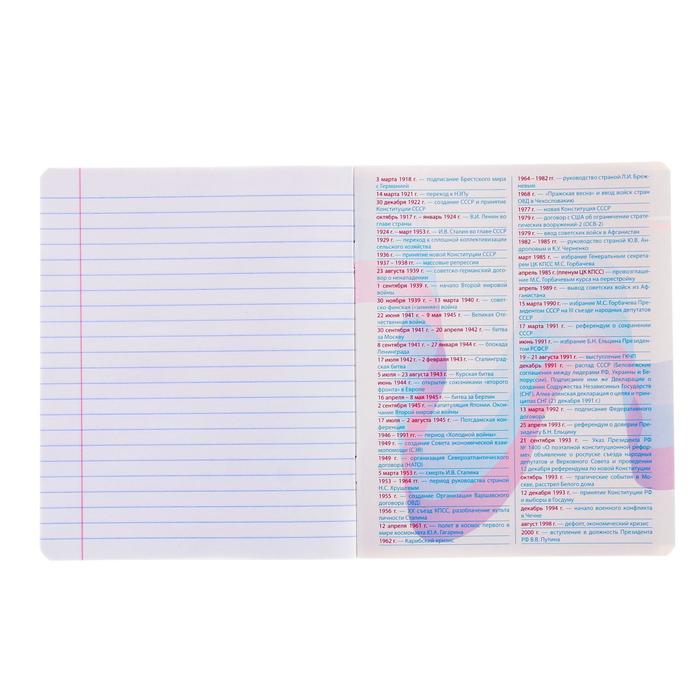 3 марта 1918 г. — подписание Брестского мира
с Германией
14 марта 1921 г. — переход к НЭПу
30 декабря 1922 г. — создание СССР и принятие
Конституции СССР
октябрь 1917 г. – январь 1924 г. — В.И. Ленин во
главе страны
1924 г. – март 1953 г. — И.В. Сталин во главе СССР
1929 г. — переход к сплошной коллективизации
сельского хозяйства
1936 г. — принятие новой Конституции СССР
1937 – 1938 гг. — массовые репрессии
23 августа 1939 г. — советско-германский дого-
вор о ненападении
1 сентября 1939 г. — начало Второй мировой
войны
30 ноября 1939 г. – 13 марта 1940 г. — совет-
ско-финская («зимняя») война
22 июня 1941 г. – 9 мая 1945 г. — Великая Оте-
чественная война
30 сентября 1941 г. – 20 апреля 1942 г. — битва
за Москву
8 сентября 1941 г. – 27 января 1944 г. — блокада
Ленинграда
17 июля 1942 г. – 2 февраля 1943 г. — Сталинград-
ская битва
5 июля – 23 августа 1943 г. — Курская битва
июнь 1944 г. — открытие союзниками «второго
фронта» в Европе
16 апреля – 8 мая 1945 г. — битва за Берлин
2 сентября 1945 г. — капитуляция Японии. Окон-
чание Второй мировой войны
17 июля – 2 августа 1945 г. — Потсдамская кон-
ференция
1946 – 1991 гг. — период «Холодной войны»
1949 г. — создание Совета экономической взаи-
мопомощи (СЭВ)
1949 г. — организация Североатлантического
договора (НАТО)
5 марта 1953 г. — смерть И.В. Сталина
1953 – 1964 гг. — период руководства страной
Н.С. Хрущевым
1955 г. — создание Организации Варшавского
договора (ОВД)
1956 г. — XX съезд КПСС, разоблачение культа
личности Сталина
12 апреля 1961 г. — полет в космос первого в
мире космонавта Ю.А. Гагарина
1962 г. — Карибский кризис
1964 – 1982 гг. — руководство страной Л.И. Бреж-
невым
1968 г. — «Пражская весна» и ввод войск стран
ОВД в Чехословакию
1977 г. — новая Конституция СССР
1979 г. — договор с США об ограничении страте-
гических вооружений-2 (ОСВ-2)
1979 г. — ввод советских войск в Афганистан
1982 – 1985 гг. — руководство страной Ю.В. Ан-
дроповым и К.У. Черненко
март 1985 г. — избрание Генеральным секрета-
рем ЦК КПСС М.С. Горбачева
апрель 1985 г. (пленум ЦК КПСС) — провозглаше-
ние М.С. Горбачевым курса на перестройку
апрель 1989 г. — вывод советских войск из Аф-
ганистана
15 марта 1990 г. — избрание М.С. Горбачева Пре-
зидентом СССР на III съезде народных депутатов
СССР
17 марта 1991 г. — референдум о сохранении
СССР
июнь 1991 г. — избрание Б.Н. Ельцина Президен-
том РСФСР
19 – 21 августа 1991 г. — выступление ГКЧП
декабрь 1991 г. — распад СССР (Беловежские
соглашения между лидерами РФ, Украины и Бе-
лоруссии). Подписание ими же Декларации о
создании Содружества Независимых Государств
(СНГ). Алма-атинская декларация о целях и прин-
ципах СНГ (21 декабря 1991 г.)
13 марта 1992 г. — подписание Федеративного
договора
25 апреля 1993 г. — референдум о доверии Пре-
зиденту Б.Н. Ельцину
21 сентября 1993 г. — Указ Президента РФ
№ 1400 «О поэтапной конституционной рефор-
ме», объявление о роспуске съезда народных
депутатов и Верховного Совета и проведении
12 декабря референдума по новой Конституции
октябрь 1993 г. — трагические события в Мо-
скве, расстрел Белого дома
12 декабря 1993 г. — принятие Конституции РФ
и выборы в Госдуму
декабрь 1994 г. — начало военного конфликта
в Чечне
август 1998 г. — дефолт, экономический кризис
2000 г. — вступление в должность Президента
РФ В.В. Путина